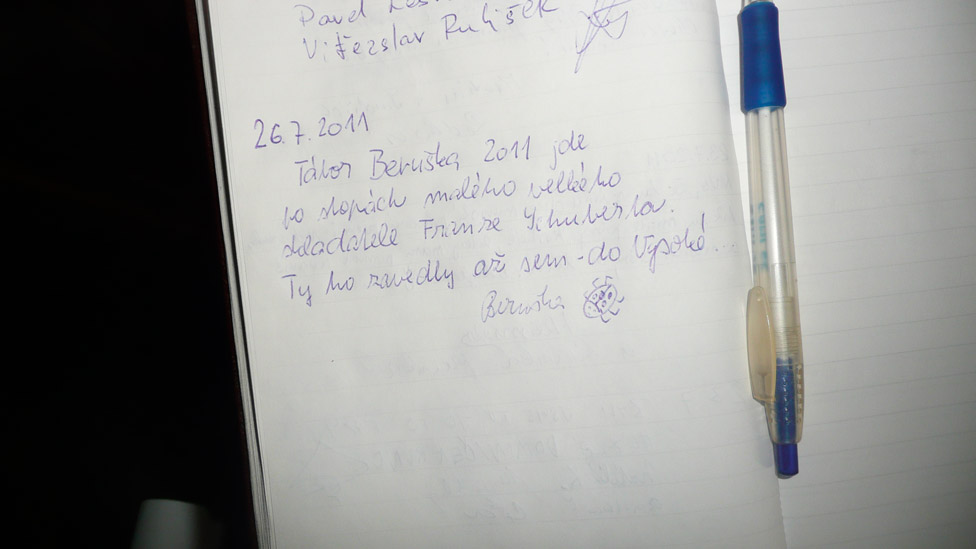 Pavel
Vítězslav
26.7.2011
Tábor Beruška 2011 jde
po stopách malého velkého
skladatele Franze Schuberta.
Ty ho zavedly až sem - do Vysoké...
Beruška